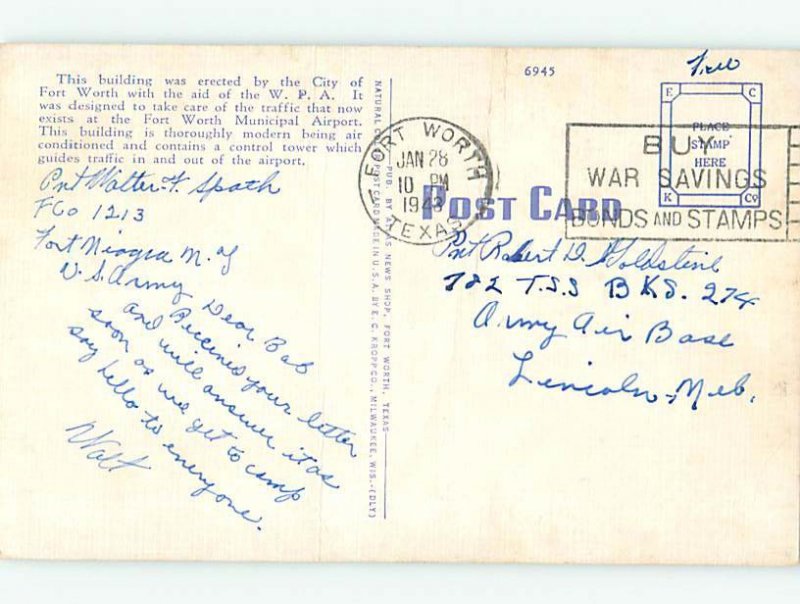 This building was erected by the City of
Fort Worth with the aid of the W. P. A. It
was designed to take care of the traffic that now
exists at the Fort Worth Municipal Airport.
This building is thoroughly modern being air
conditioned and contains a control tower which
guides traffic in and out of the airport.
Pvt Walter F. Spath
F Co 1213
Fort Niagra N. Y
U. S. Army
Dear Bob
Recieved your letter
and will answer it as
soon as we get to camp
say hello to everyone.
Walt
NATURAL COLOR POST CARD MADE IN U.S.A. BY E. C. KROPP CO., MILWAUKEE, WIS.-(DLY)
PUB. BY NEWS SHOP, FORT WORTH, TEXAS
6945
Free
E C
PLACE
STAMP
HERE
K Co
FORT WORTH
JAN 28
10 PM
1943
TEXAS
BUY
WAR SAVINGS
BONDS AND STAMPS
POST CARD
Pvt Robert D. Goldstine
782 T.S.S BKS. 274
Army Air Base
Lincoln, Neb.